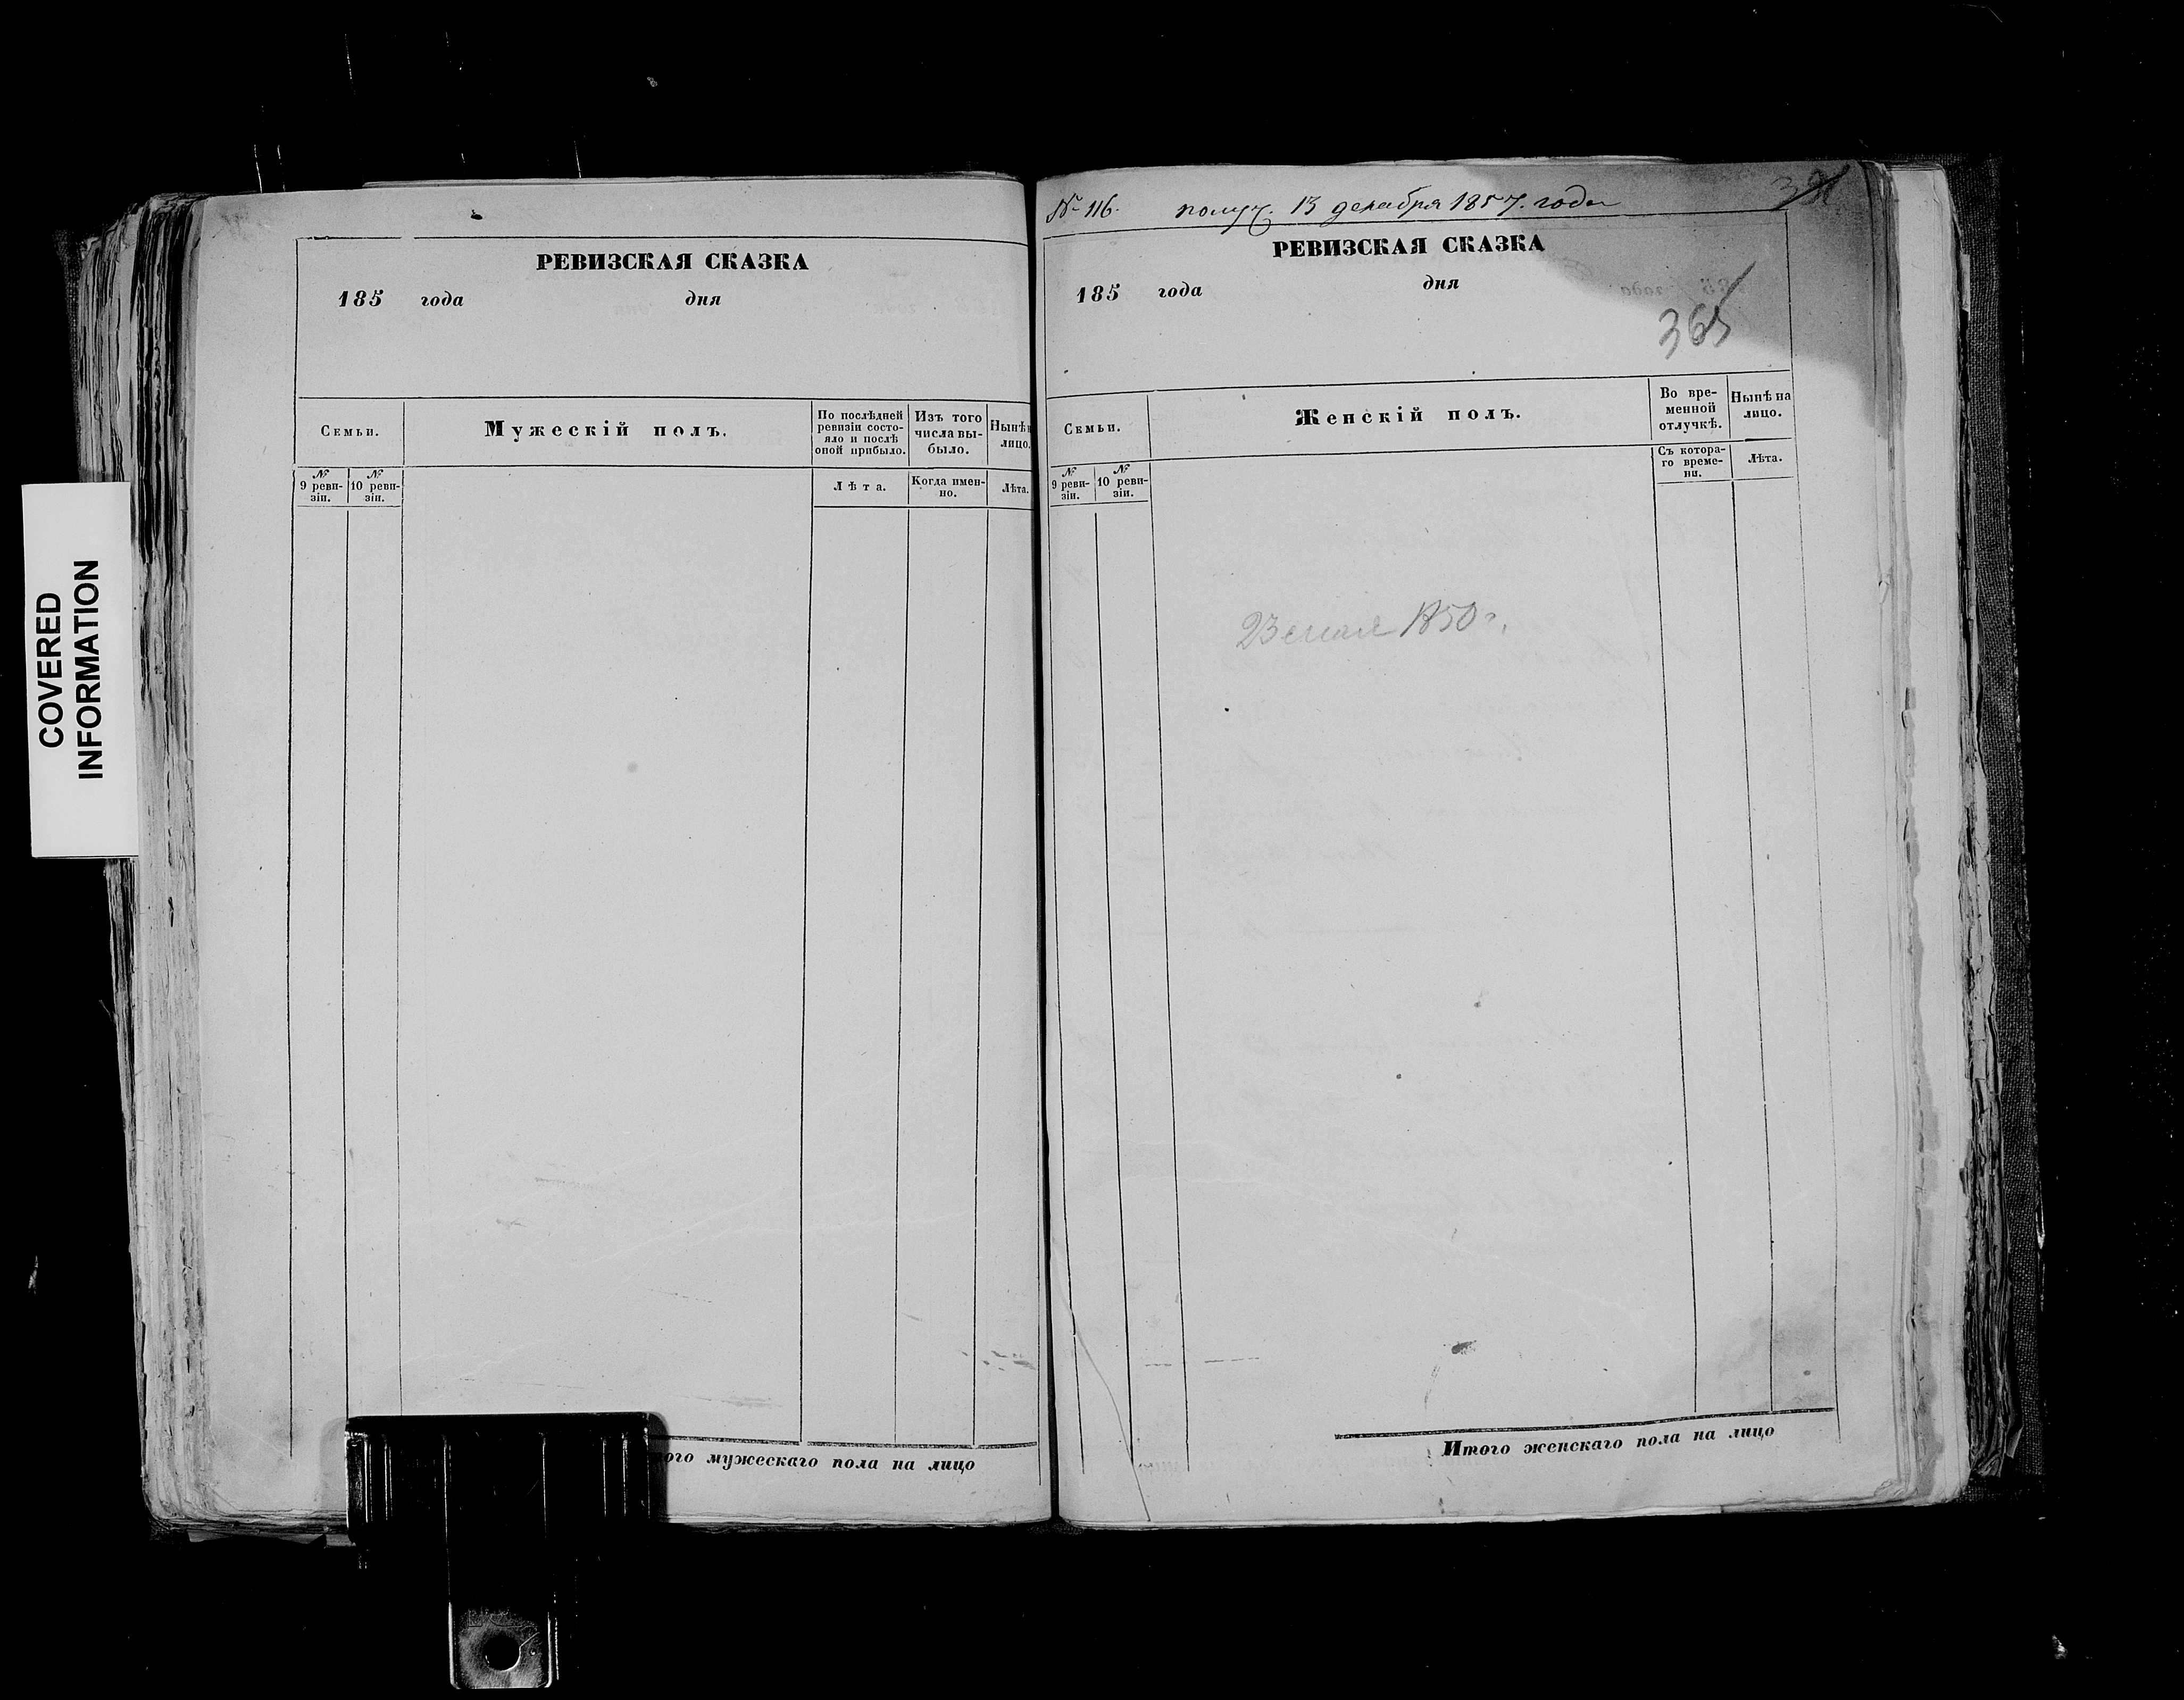 COVERED
INFORMATION
РЕВИЗСКАЯ СКАЗКА
185 года дня
Семьи.
Мужескій полъ.
По послѣдней
ревизіи состо-
яло и послѣ
оной прибыло.
Изъ того
числа вы-
было.
Нынѣ
лицо.
№
9 реви-
зіи.
№
10 реви-
зіи.
Лѣта.
Когда имен-
но.
Лѣта.
ого мужескаго пола на лицо
№ 116. получ. 13 декабря 1857. года
РЕВИЗСКАЯ СКАЗКА
185 года дня
365
Семьи.
Женскій полъ.
Во вре-
менной
отлучкѣ.
Нынѣ на
лицо.
№
9 реви-
зіи.
№
10 реви-
зіи.
Съ котора-
го време-
ни.
Лѣта.
23 1850 г.
Итого женскаго пола на лицо